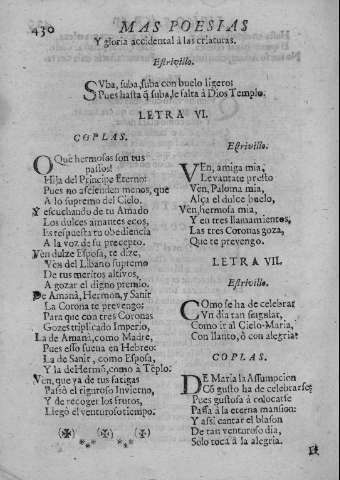 430
MAS POESIAS
Y gloria accidental à las criaturas.
Estrivillo.
SVba, suba, suba con buelo ligero:
Pues hasta q̃ suba, le falta à Dios Templo.
LETRA VI.
COPLAS.
O Què hermosos son tus
passos!
Hija del Principe Eterno:
Pues no ascienden menos, que
A lo supremo del Cielo.
Y escuchando de tu Amado
Los dulces amantes ecos,
Es respuesta tu obediencia
A la voz de su precepto.
Ven dulze Esposa, te dize,
Ven del Libano supremo
De tus meritos altivos,
A gozar el digno premio.
De Amanà, Hermon, y Sanir
La Corona te prevengo:
Para que con tres Coronas
Gozes triplicado Imperio,
La de Amanà, como Madre,
Pues esso suena en Hebreo:
La de Sanir, como Esposa,
Y la de Hermõ, como à Tẽplo.
Ven, que ya de tus fatigas
Passò el riguroso Invierno,
Y de recoger los frutos,
Llegò el venturoso tiempo.
Estrivillo.
VEn, amiga mia,
Levantate presto
Ven, Paloma mia,
Alça el dulce buelo,
Ven, hermosa mia,
Y en tres llamamientos,
Las tres Coronas goza,
Que te prevengo.
LETRA VII.
Estrivillo.
COmo se ha de celebrar
Vn dia tan singular,
Como ir al Cielo Maria,
Con llanto, ò con alegria?
COPLAS.
DE Maria la Assumpcion
Cõ gusto ha de celebrarse;
Pues gustosa à colocarse
Passa à la eterna mansion:
Y assi cantar el blason
De tan venturoso dia,
Solo toca à la alegria.